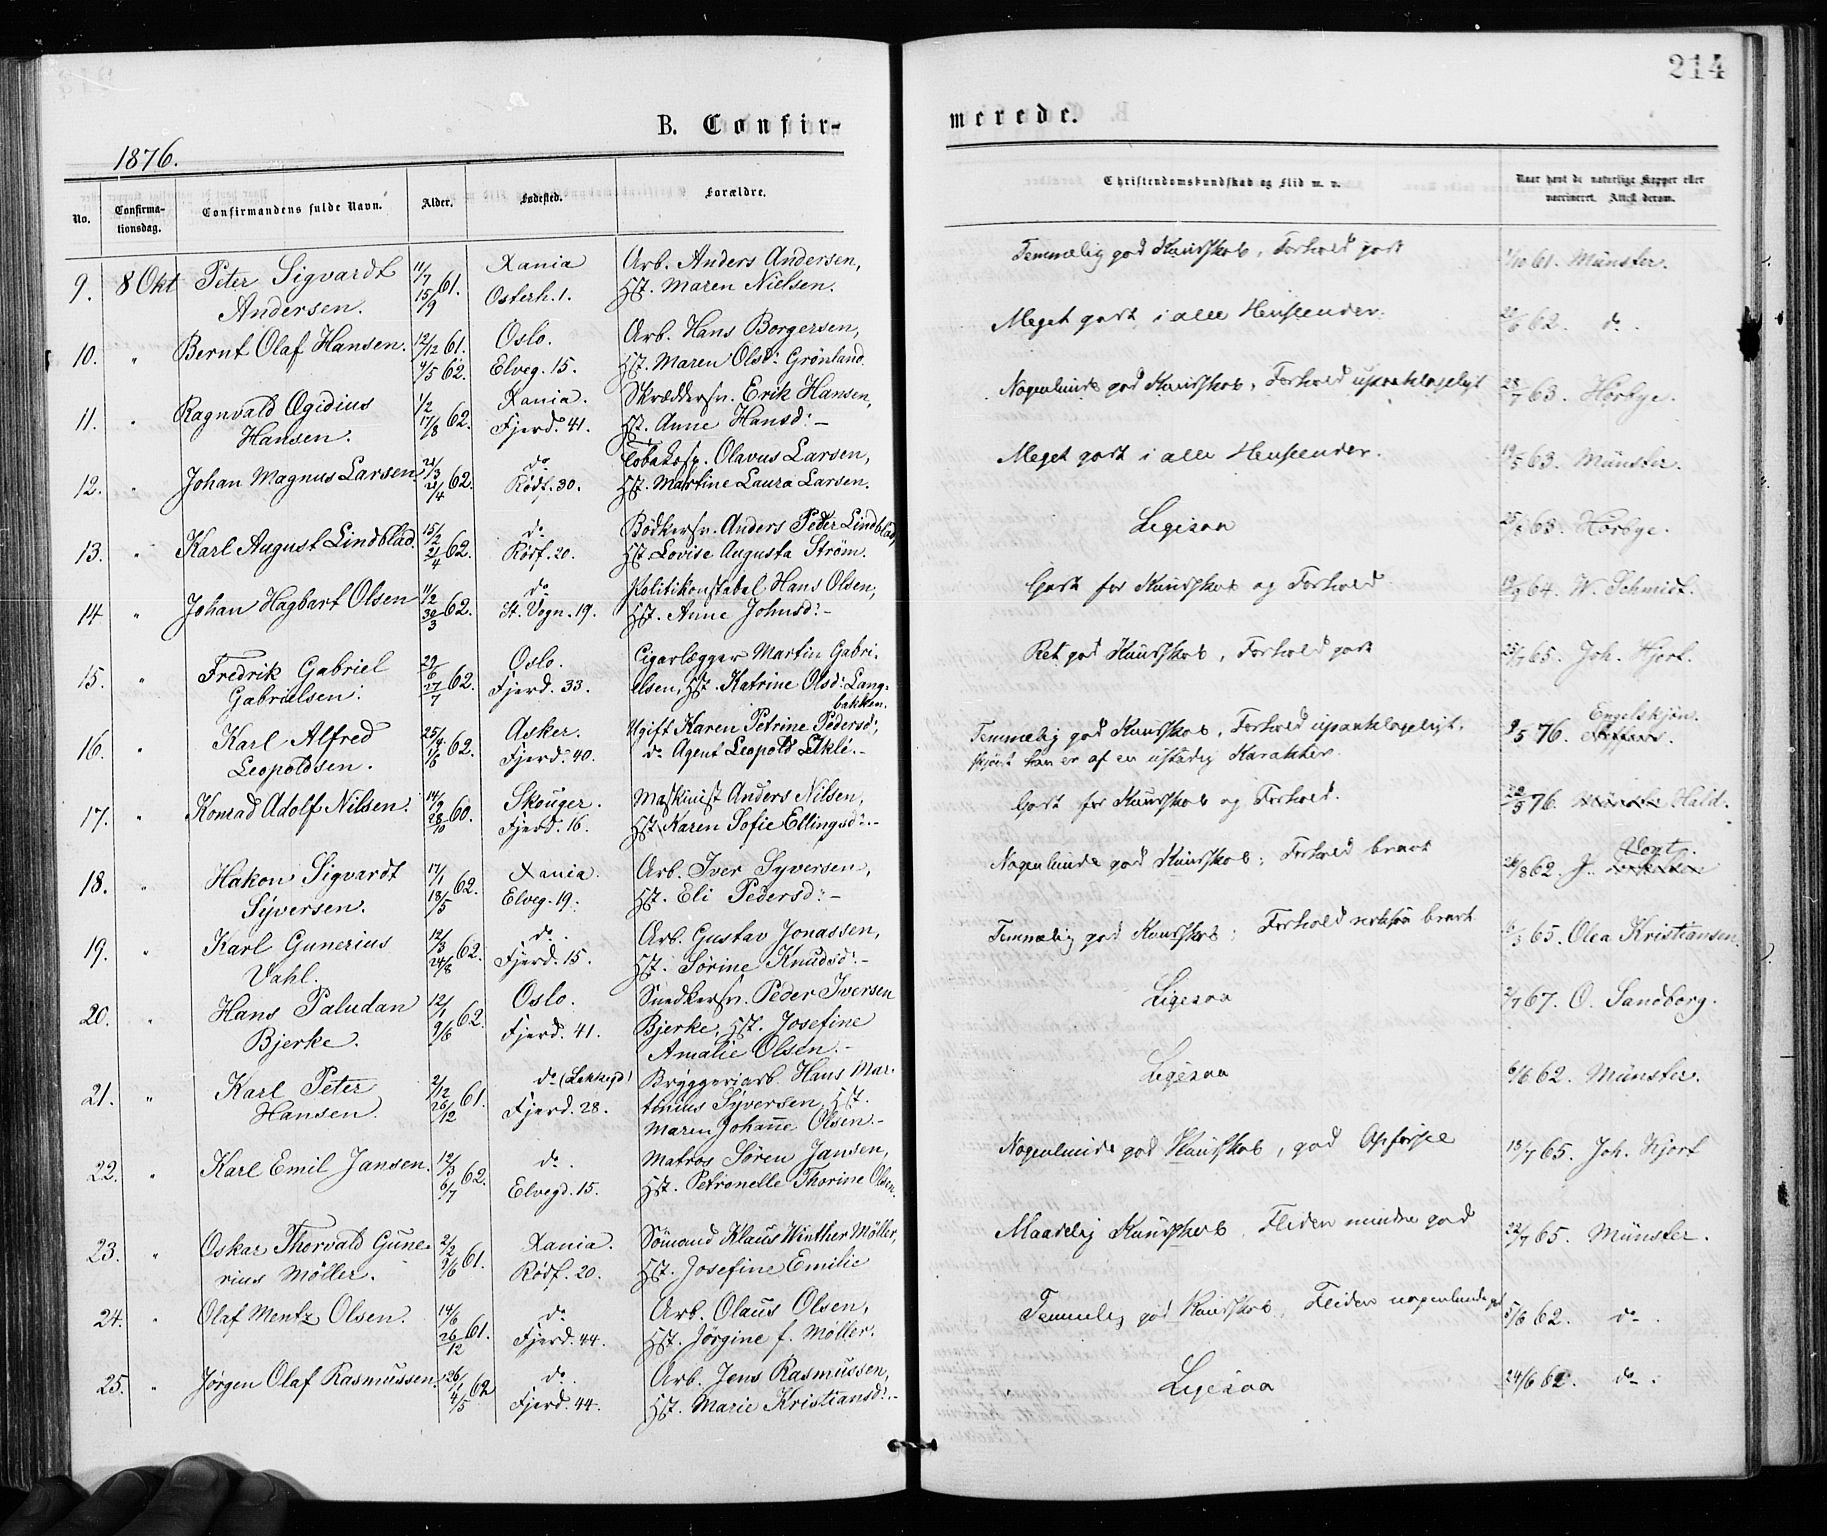 214
B. Confir-
merede.
1876.
No.
Confirma-
tionsdag.
Confirmandens fulde Navn.
Alder.
Fødested.
Forældre.
Christendomskundskab og Flid m. v.
Naar havt de naturlige Kopper eller
vaccineret. Attest derom.
9. 8 Okt Peter Sigvardt 11/7 61. Xania Arb. Anders Andersen, Temmelig god Kundskab, Forhold godt 1/10 61. Münster.
Andersen. 15/9 Osterh. 1. Hst. Maren Nielsen.
10. " Bernt Olaf Hansen. 12/12 61. Oslo. Arb. Hans Borgersen, Meget godt i alle Henseender. 62. do.
4/5 62. Elveg. 15. Hst. Maren Olsd: Grönland.
11. " Ragnvald Ægidius 1/2 62. Xania. Skræddersv. Erik Hansen, Nogenlunde god Kundskab, Forhold upaaklageligt 28/7 63. Hörbye.
Hansen. 17/8 Fjerd. 41. Hst. Anne Hansd: –
12. " Johan Magnus Larsen 21/3 62. do Tobaksp. Olavus Larsen, Meget godt i alle Henseender. 19/5 63. Münster.
23/4 Rödf. 30. Hst. Martine Laura Larsen.
13. " Karl August Lindblad. 15/2 62. do Bödkersv. Anders Peter Lindblad, Ligesaa 63. Hörbye.
21/4 Rödf. 20. Hst. Lovise Augusta Ström.
14 " Johan Hagbart Olsen 11/2 62. do Politikonstabel Hans Olsen, Godt for Kundskab og Forhold. 19/9 64. W. Schmidt.
30/3 St. Vogn. 19. Hst. Anne Johnsd: –
15. " Fredrik Gabriel 29/6 62. Oslo. Cigarlægger Martin Gabri- Ret god Kundskab, Forhold godt 25/7 65. Joh. Hjort.
Gabrielsen. 27/7 Fjerd. 33. elsen, Hst. Katrine Olsd: Lang-
bakken.
16. " Karl Alfred 25/4 62. Asker. Ugift Karen Petrine Pedersd:, Temmelig god Kundskab, Forhold upaaklageligt, 9/5 76. Engelskjön.
Leopoldsen. 1/6 Fjerd. 40. do Agent Leopold Ekli. – skjönt han er af en ustadig Karakter.
17. " Konrad Adolf Nilsen. 14/9 60. Skouger. Maskinist Anders Nilsen, Godt for Kundskab og Forhold. 22/3 76. Hald.
28/10 Fjerd. 16. Hst. Karen Sofie Ellingsd: –
18. " Hakon Sigvardt 17/1 62. Xania. Arb. Iver Syversen, Nogenlunde god Kundskab; Forhold bravt 26/8 62. J. Vogt.
Syversen. 13/5 Elveg. 19. Hst. Eli Pedersd: –
19. " Karl Gunerius 12/3 62. do. Arb. Gustav Jonassen, Temmelig god Kundskab; Forhold bravt 6/3 65. Olea Kristiansen.
Vahl. 24/8 Fjerd. 15. Hst. Sörine Knudsd: –
20. " Hans Paludan 12/1 62. Oslo. Snedkersv. Peder Iversen Ligesaa 2/7 67. O. Sandborg.
Bjerke. 9/6 Fjerd. 41. Bjerke, Hst. Josefine
Amalie Olsen. –
21. " Karl Peter 2/12 61. do (Lakkegd) Bryggeriarb. Hans Mar- Ligesaa 6/6 62. Münster.
Hansen. 26/12 Fjerd. 28. tinius Syversen, Hst.
Maren Johanne Olsen. –
22. " Karl Emil Jansen. 12/3 62. do. Matros Sören Jansen, Nogenlunde god Kundskab, god Opförsel 13/7 65. Joh. Hjort
6/7 Elvegd. 15. Hst. Petronelle Thorine Olsen.
23. " Oskar Thorvald Gune- 2/2 61. Xania. Sömand Klaus Winther Möller, Maadelig Kundskab, Fliden mindre god 22/7 65. Münster.
rius Möller. 9/6 Rödf. 20. Hst. Josefine Emilie
24. " Olaf Mentz Olsen. 14/6 61. do Arb. Olaus Olsen, Temmelig god Kundskab, Fliden nogenlunde god 5/6 62. do.
26/12 Fjerd. 44. Hst. Jörgine f. Möller.
25. " Jörgen Olaf Rasmussen. 26/1 62 do. Arb. Jens Rasmussen, Ligesaa 24/6 62. do.
4/5 Fjerd. 44. Hst. Marie Kristiansd: –